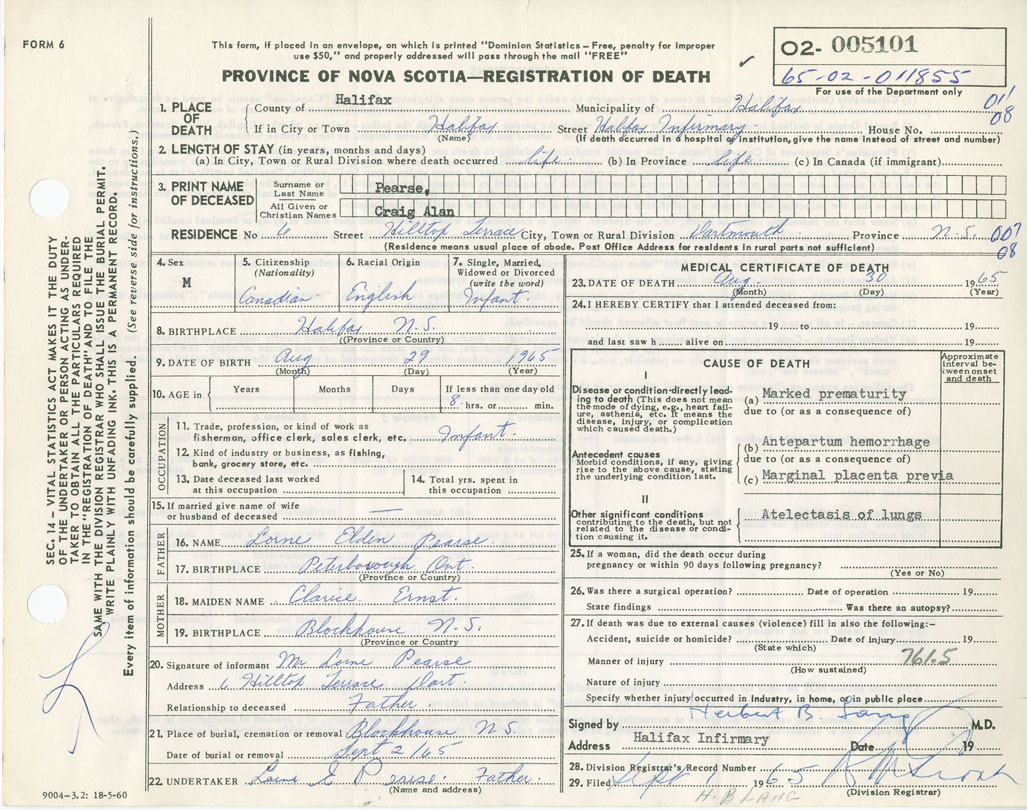 FORM 6
This form, if placed in an envelope, on which is printed "Dominion Statistics – Free, penalty for improper
use $50," and properly addressed will pass through the mail "FREE"
PROVINCE OF NOVA SCOTIA—REGISTRATION OF DEATH
O2- 005101
65-02-011855
For use of the Department only
1. PLACE OF DEATH
County of Halifax Municipality of Halifax 011 08
If in City or Town Halifax (Name) Street Halifax Infirmary House No.
(If death occurred in a hospital or institution, give the name instead of street and number)
2. LENGTH OF STAY (in years, months and days)
(a) In City, Town or Rural Division where death occurred life. (b) In Province life. (c) In Canada (if immigrant)
3. PRINT NAME OF DECEASED
Surname or Last Name Pearse,
All Given or Christian Names Craig Alan
RESIDENCE No 6 Street Hilltop Terrace City, Town or Rural Division Dartmouth Province N.S. 007 08
(Residence means usual place of abode. Post Office Address for residents in rural parts not sufficient)
4. Sex M
5. Citizenship (Nationality) Canadian
6. Racial Origin English
7. Single, Married, Widowed or Divorced (write the word) Infant.
8. BIRTHPLACE Halifax N.S.
(Province or Country)
9. DATE OF BIRTH Aug 29 1965
(Month) (Day) (Year)
10. AGE in Years Months Days If less than one day old
8 hrs. or min.
OCCUPATION
11. Trade, profession, or kind of work as
fisherman, office clerk, sales clerk, etc. Infant.
12. Kind of industry or business, as fishing,
bank, grocery store, etc.
13. Date deceased last worked
at this occupation
14. Total yrs. spent in
this occupation
15. If married give name of wife
or husband of deceased —
FATHER
16. NAME Lorne Elden Pearse.
17. BIRTHPLACE Peterborough Ont.
(Province or Country)
MOTHER
18. MAIDEN NAME Clarice Ernst.
19. BIRTHPLACE Blockhouse N.S.
(Province or Country)
20. Signature of informant Mr Lorne Pearse
Address 6 Hilltop Terrace Dart.
Relationship to deceased Father.
21. Place of burial, cremation or removal Blockhouse N S.
Date of burial or removal Sept 2/65
22. UNDERTAKER Lorne E Pearse. Father.
(Name and address)
9004-3.2: 18-5-60
MEDICAL CERTIFICATE OF DEATH
23. DATE OF DEATH Aug. 30 1965
(Month) (Day) (Year)
24. I HEREBY CERTIFY that I attended deceased from:
19 to 19
and last saw h alive on 19
CAUSE OF DEATH
Approximate interval between onset and death
I
Disease or condition directly leading to death (This does not mean the mode of dying, e.g., heart failure, asthenia, etc. It means the disease, injury, or complication which caused death.)
(a) Marked prematurity
due to (or as a consequence of)
Antecedent causes
Morbid conditions, if any, giving rise to the above cause, stating the underlying condition last.
(b) Antepartum hemorrhage
due to (or as a consequence of)
(c) Marginal placenta previa
II
Other significant conditions contributing to the death, but not related to the disease or condition causing it.
Atelectasis of lungs
25. If a woman, did the death occur during
pregnancy or within 90 days following pregnancy?
(Yes or No)
26. Was there a surgical operation? Date of operation 19
State findings Was there an autopsy?
27. If death was due to external causes (violence) fill in also the following:-
Accident, suicide or homicide? Date of injury 19
(State which)
Manner of injury 761.5
(How sustained)
Nature of injury
Specify whether injury occurred in industry, in home, or in public place
Signed by Herbert B. Lang M.D.
Address Halifax Infirmary Date 19
28. Division Registrar's Record Number
29. Filed Sept 1 1965
(Division Registrar)
H. B LANG
SEC. 14 – VITAL STATISTICS ACT MAKES IT THE DUTY
OF THE UNDERTAKER OR PERSON ACTING AS UNDERTAKER
TO OBTAIN ALL THE PARTICULARS REQUIRED
IN THE "REGISTRATION OF DEATH" AND TO FILE THE
SAME WITH THE DIVISION REGISTRAR WHO SHALL ISSUE THE BURIAL PERMIT.
WRITE PLAINLY WITH UNFADING INK. THIS IS A PERMANENT RECORD.
Every item of information should be carefully supplied. (See reverse side for instructions.)